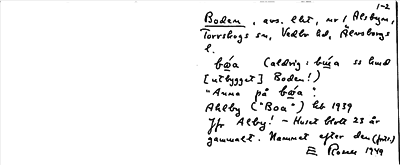 1-2
Boden, avs. lht, nr 1 Alsbyn,
Torrskogs sn, Vedbo hd, Älvsborgs
l.
bωa (aldrig: bωa ss hund
[utbygget] Boden!)
"Anna på bωa".
Ahlby ("Boa") lht 1939
Jfr Alby! - Huset blott 23 år
gammalt. Namnet efter den (förr.)
E Rosell 1949